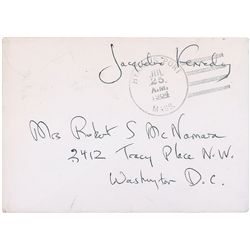 Jacqueline Kennedy
JUL
25
A.M.
MASS.
Mrs Robert S McNamara
2412 Tracy Place N.W.
Washington D.C.